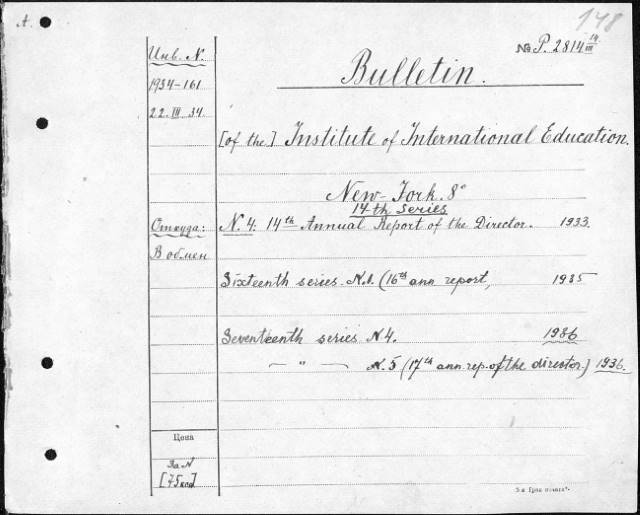 A.
148
№ P. 2814 14/III
Инв. N.
1934-161
22.III.34.
Bulletin.
[of the] Institute of International Education.
New-York. 8°
14th Series
Откуда:
N. 4: 14th Annual Report of the Director. 1933.
В обмен
Sixteenth series. N.1. (16th ann. report, 1935
Seventeenth series N4. 1936
— " — N. 5 (17th ann. rep. of the director.) 1936.
Цена
За N
[75 коп]